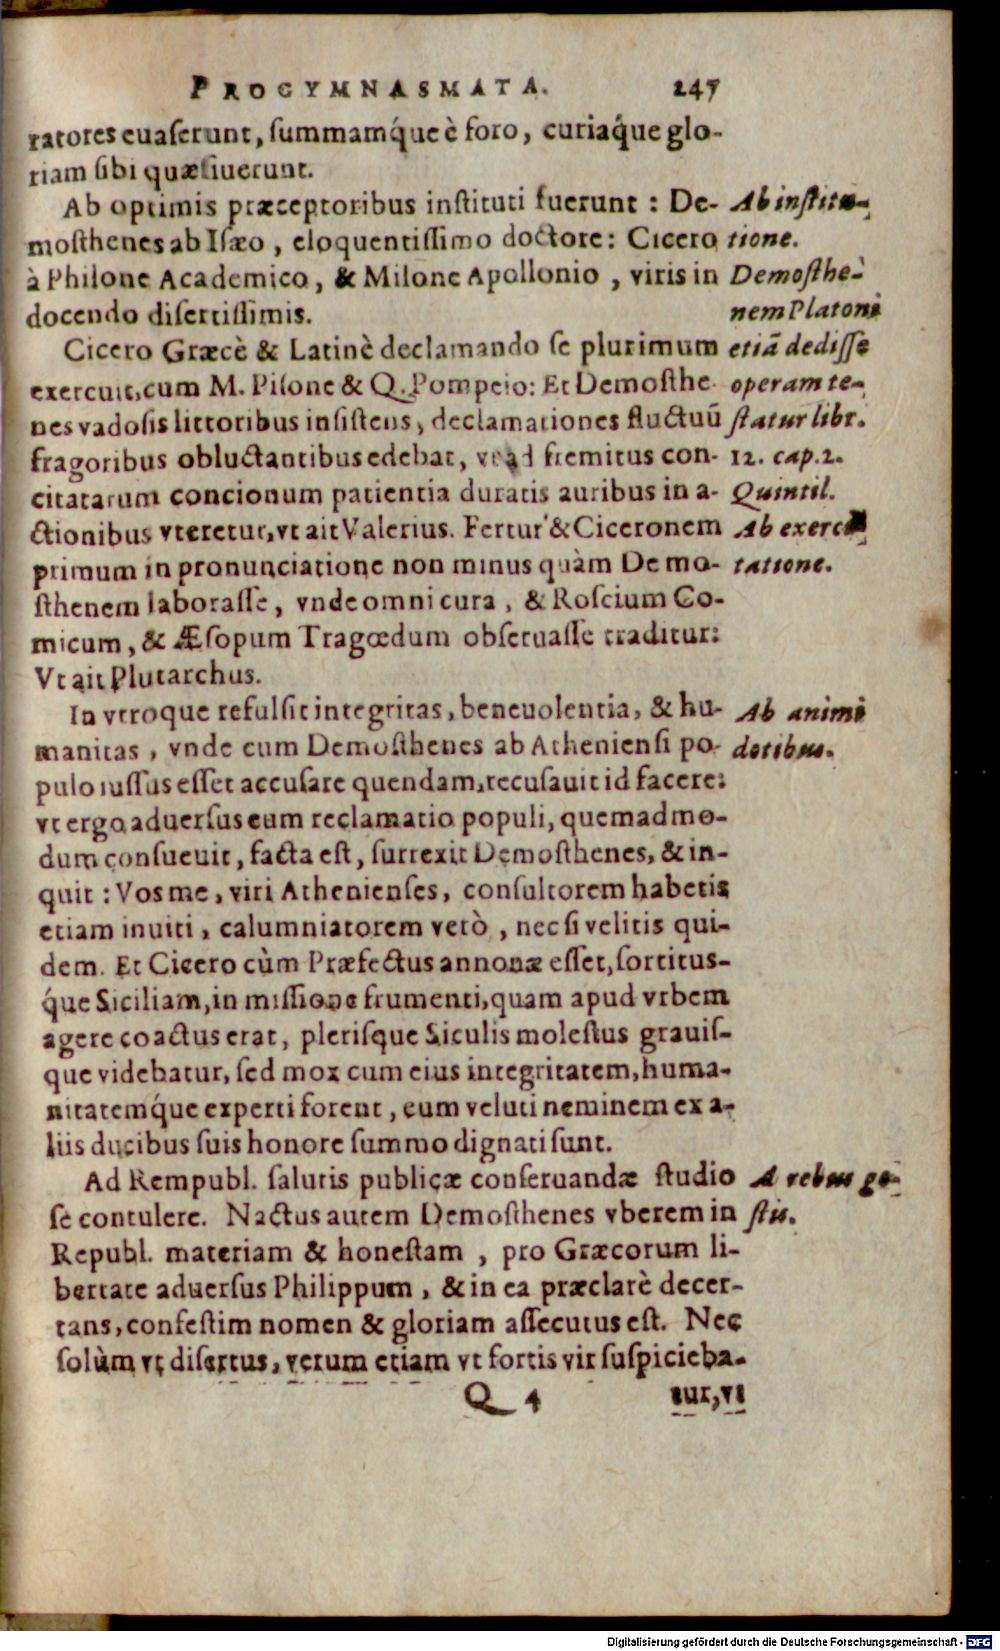 PROGYMNASMATA. 247
ratores euaserunt, summamq́ue è foro, curiaq́ue glo-
riam sibi quæsiuerunt.
Ab optimis præceptoribus instituti fuerunt : De-
mosthenes ab Isæo, eloquentissimo doctore: Cicero
à Philone Academico, & Milone Apollonio, viris in
docendo disertissimis.
Cicero Græcè & Latinè declamando se plurimum
exercuit, cum M. Pisone & Q. Pompeio: Et Demosthe
nes vadosis littoribus insistens, declamationes fluctuū
fragoribus obluctantibus edebat, vt ad fremitus con-
citatarum concionum patientia duratis auribus in a-
ctionibus vteretur, vt ait Valerius. Fertur & Ciceronem
primum in pronunciatione non minus quàm Demo-
sthenem laborasse, vnde omni cura, & Roscium Co-
micum, & Æsopum Tragœdum obseruasse traditur:
Vt ait Plutarchus.
In vtroque refulsit integritas, beneuolentia, & hu-
manitas, vnde cum Demosthenes ab Atheniensi po-
pulo iussus esset accusare quendam, recusauit id facere:
vt ergo aduersus eum reclamatio populi, quemadmo-
dum consueuit, facta est, surrexit Demosthenes, & in-
quit : Vos me, viri Athenienses, consultorem habetis
etiam inuiti, calumniatorem verò, nec si velitis qui-
dem. Et Cicero cùm Præfectus annonæ esset, sortitus-
q́ue Siciliam, in missione frumenti, quam apud vrbem
agere coactus erat, plerisque Siculis molestus grauis-
que videbatur, sed mox cum eius integritatem, huma-
nitatemq́ue experti forent, eum veluti neminem ex a-
liis ducibus suis honore summo dignati sunt.
Ad Rempubl. salutis publicæ conseruandæ studio
se contulere. Nactus autem Demosthenes vberem in
Republ. materiam & honestam, pro Græcorum li-
bertate aduersus Philippum, & in ea præclarè decer-
tans, confestim nomen & gloriam assecutus est. Nec
solùm vt disertus, verum etiam vt fortis vir suspicieba-
Q 4 tur, vt
Ab institu-
tione.
Demosthe-
nem Platoni
etiā dedisse
operam te-
statur libr.
12. cap. 2.
Quintil.
Ab exerci-
tatione.
Ab animi
dotibus.
A rebus ge-
stis.
Digitalisierung gefördert durch die Deutsche Forschungsgemeinschaft - DFG